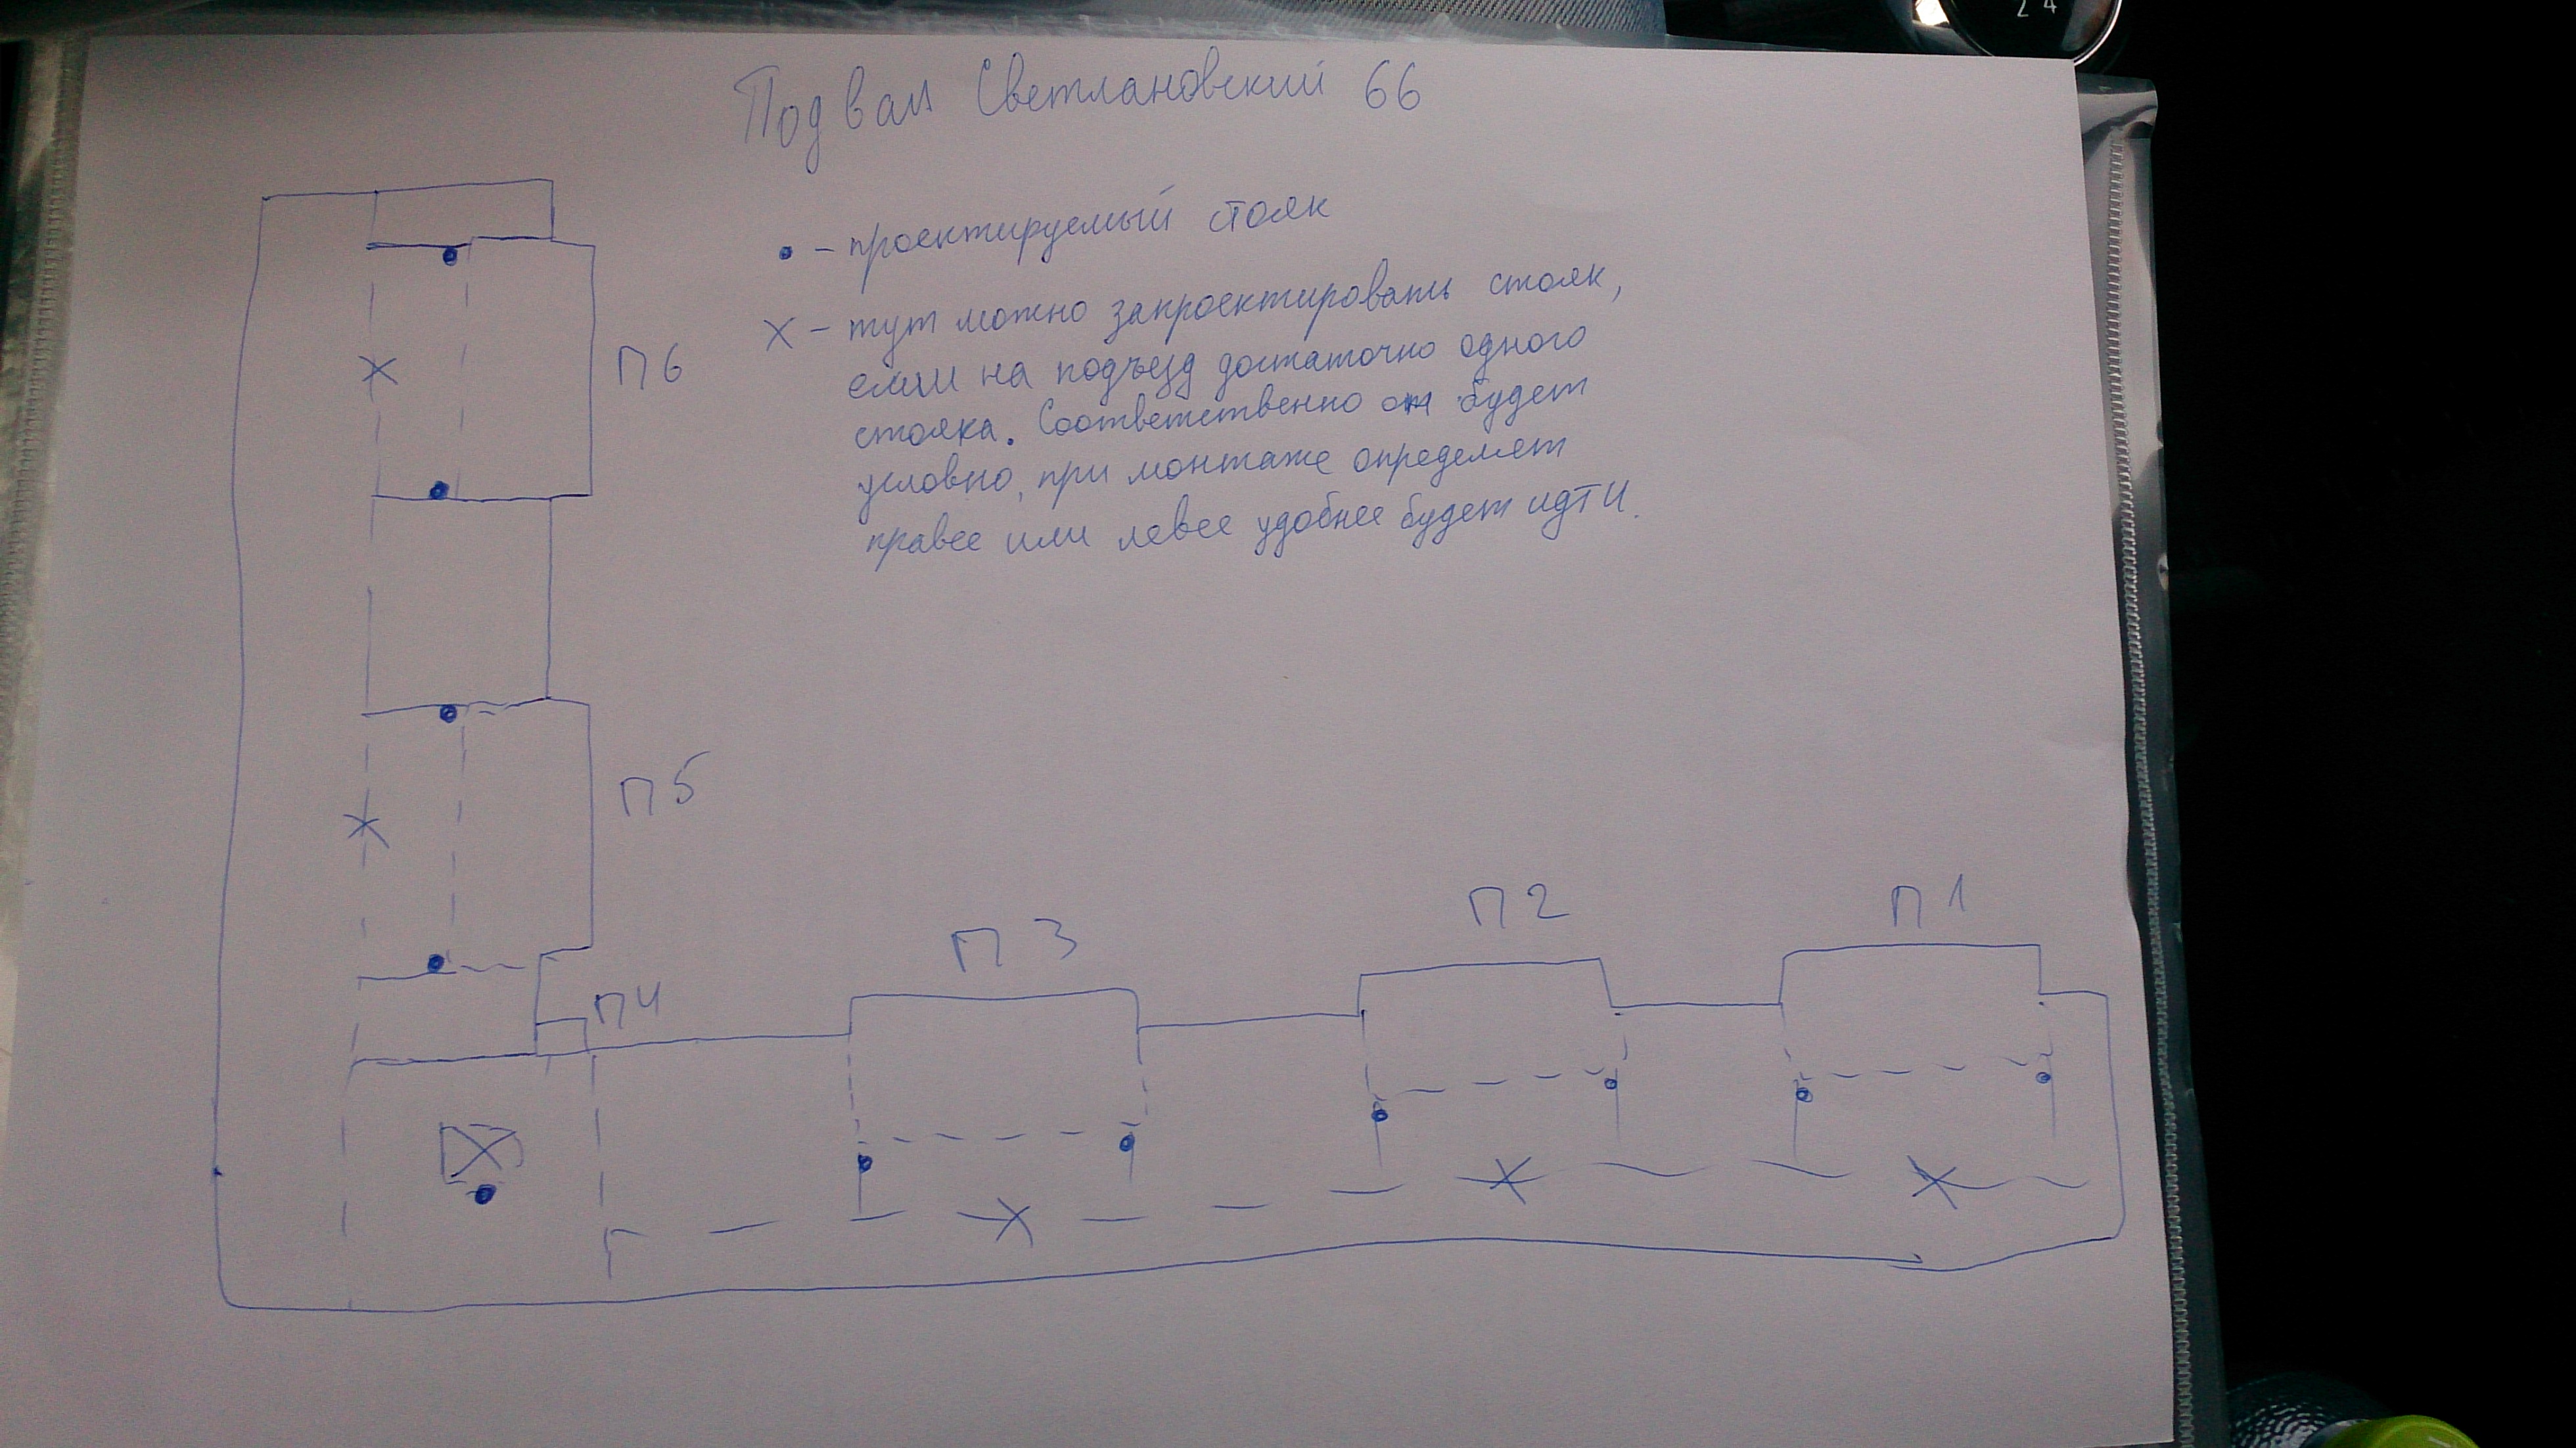 Подвал Светлановский 66
• – проектируемый стояк
X – тут можно запроектировать стояк,
если на подъезд достаточно одного
стояка. Соответственно он будет
условно, при монтаже определят
правее или левее удобнее будет идти.
П6
П5
П4
П3
П2
П1
24